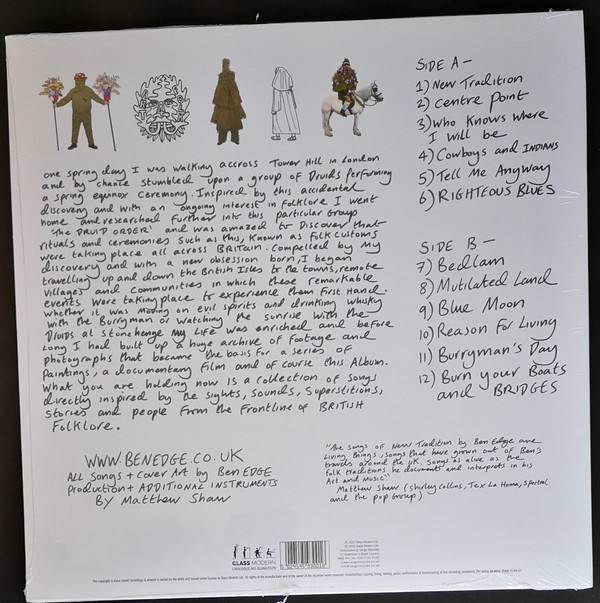 one spring day I was walking accross Tower Hill in London
and by chance stumbled upon a group of Druids performing
a spring equinox ceremony. Inspired by this accidental
discovery and with an ongoing interest in Folklore I went
home and researched further into this particular Group
'The DRUID ORDER' and was amazed to Discover that
rituals and ceremonies such as this, known as Folk customs
were taking place all across BRITAIN. Compelled by my
discovery and with a new obsession born, I began
travelling up and down the British Isles to the towns, remote
villages and communities in which these remarkable
events were taking place to experience them First Hand.
Whether it was moving on evil spirits and drinking whisky
with the Burryman or watching the sunrise with the
Druids at Stonehenge my life was enriched and before
long I had built up a huge archive of Footage and
photographs that became the basis for a series of
paintings, a documentary Film and of course this Album.
What you are holding now is a collection of songs
directly inspired by the sights, Sounds, Superstitions,
Stories and people From the Frontline of BRITISH
Folklore.
WWW.BENEDGE.CO.UK
All Songs + Cover Art by Ben EDGE
Production + ADDITIONAL INSTRUMENTS
By Matthew Shaw
SIDE A -
1) New Tradition
2) Centre Point
3) Who Knows Where
I will be
4) Cowboys and INDIANS
5) Tell Me Anyway
6) RIGHTEOUS BLUES
SIDE B -
7) Bedlam
8) Mutilated Land
9) Blue Moon
10) Reason For Living
11) Burryman's Day
12) Burn your Boats
and BRIDGES
"The songs of New Tradition by Ben Edge are
Living Beings, songs that have grown out of Ben's
travels around the UK. Songs as alive as the
Folk traditions he documents and interprets in his
Art and Music."
Matthew Shaw (Shirley Collins, Tex La Homa, Sportal
and the Pop Group)
GLASS MODERN